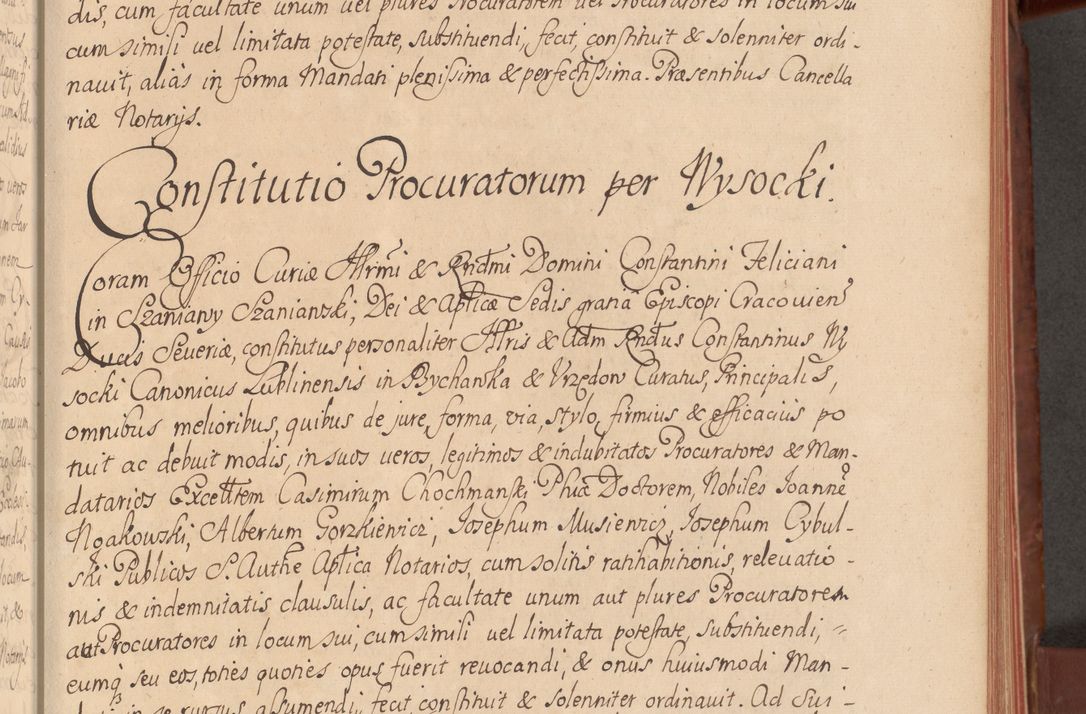 dis, cum facultate unum vel plures Procuratorem vel Procuratores in locum sui
cum simili vel limitata potestate, substituendi, fecit, constituit & solenniter ordi-
nauit, alias in forma Mandati plenissima & perfectissima. Præsentibus Cancella
riæ Notarijs.
Constitutio Procuratorum per Wysocki.
Coram Officio Curiæ Illrmi & Rndmi Domini Constantini Feliciani
in Szaniawy Szaniawski, Dei & Aplicæ Sedis gratia Episcopi Cracovien
Ducis Severiæ, constitutus personaliter Illris & Adm Rndus Constantinus Wy
socki Canonicus Lublinensis in Bychawka & Vrzędow Curatus, Principalis,
omnibus melioribus, quibus de jure, forma, via, stylo, firmius & efficaciùs po
tuit ac debuit modis, in suos veros, legitimos & indubitatos Procuratores & Man-
datarios Excelltem Casimirum Chochmanski Phiæ Doctorem, Nobiles Ioanne
Noakowski, Albertum Gorzkiewicz, Iosephum Musiewicz, Iosephum Cybul-
ski Publicos S. Authe Aplica Notarios, cum solitis ratihabitionis, relevatio-
nis & indemnitatis clausulis, ac facultate unum aut plures Procuratorem
aut Procuratores in locum sui, cum simili vel limitata potestate, substituendi,
eumq seu eos, toties quoties opus fuerit revocandi, & onus huiusmodi Man-
in se rursus assumendi, fecit, constituit & solenniter ordinauit. Ad Sui-